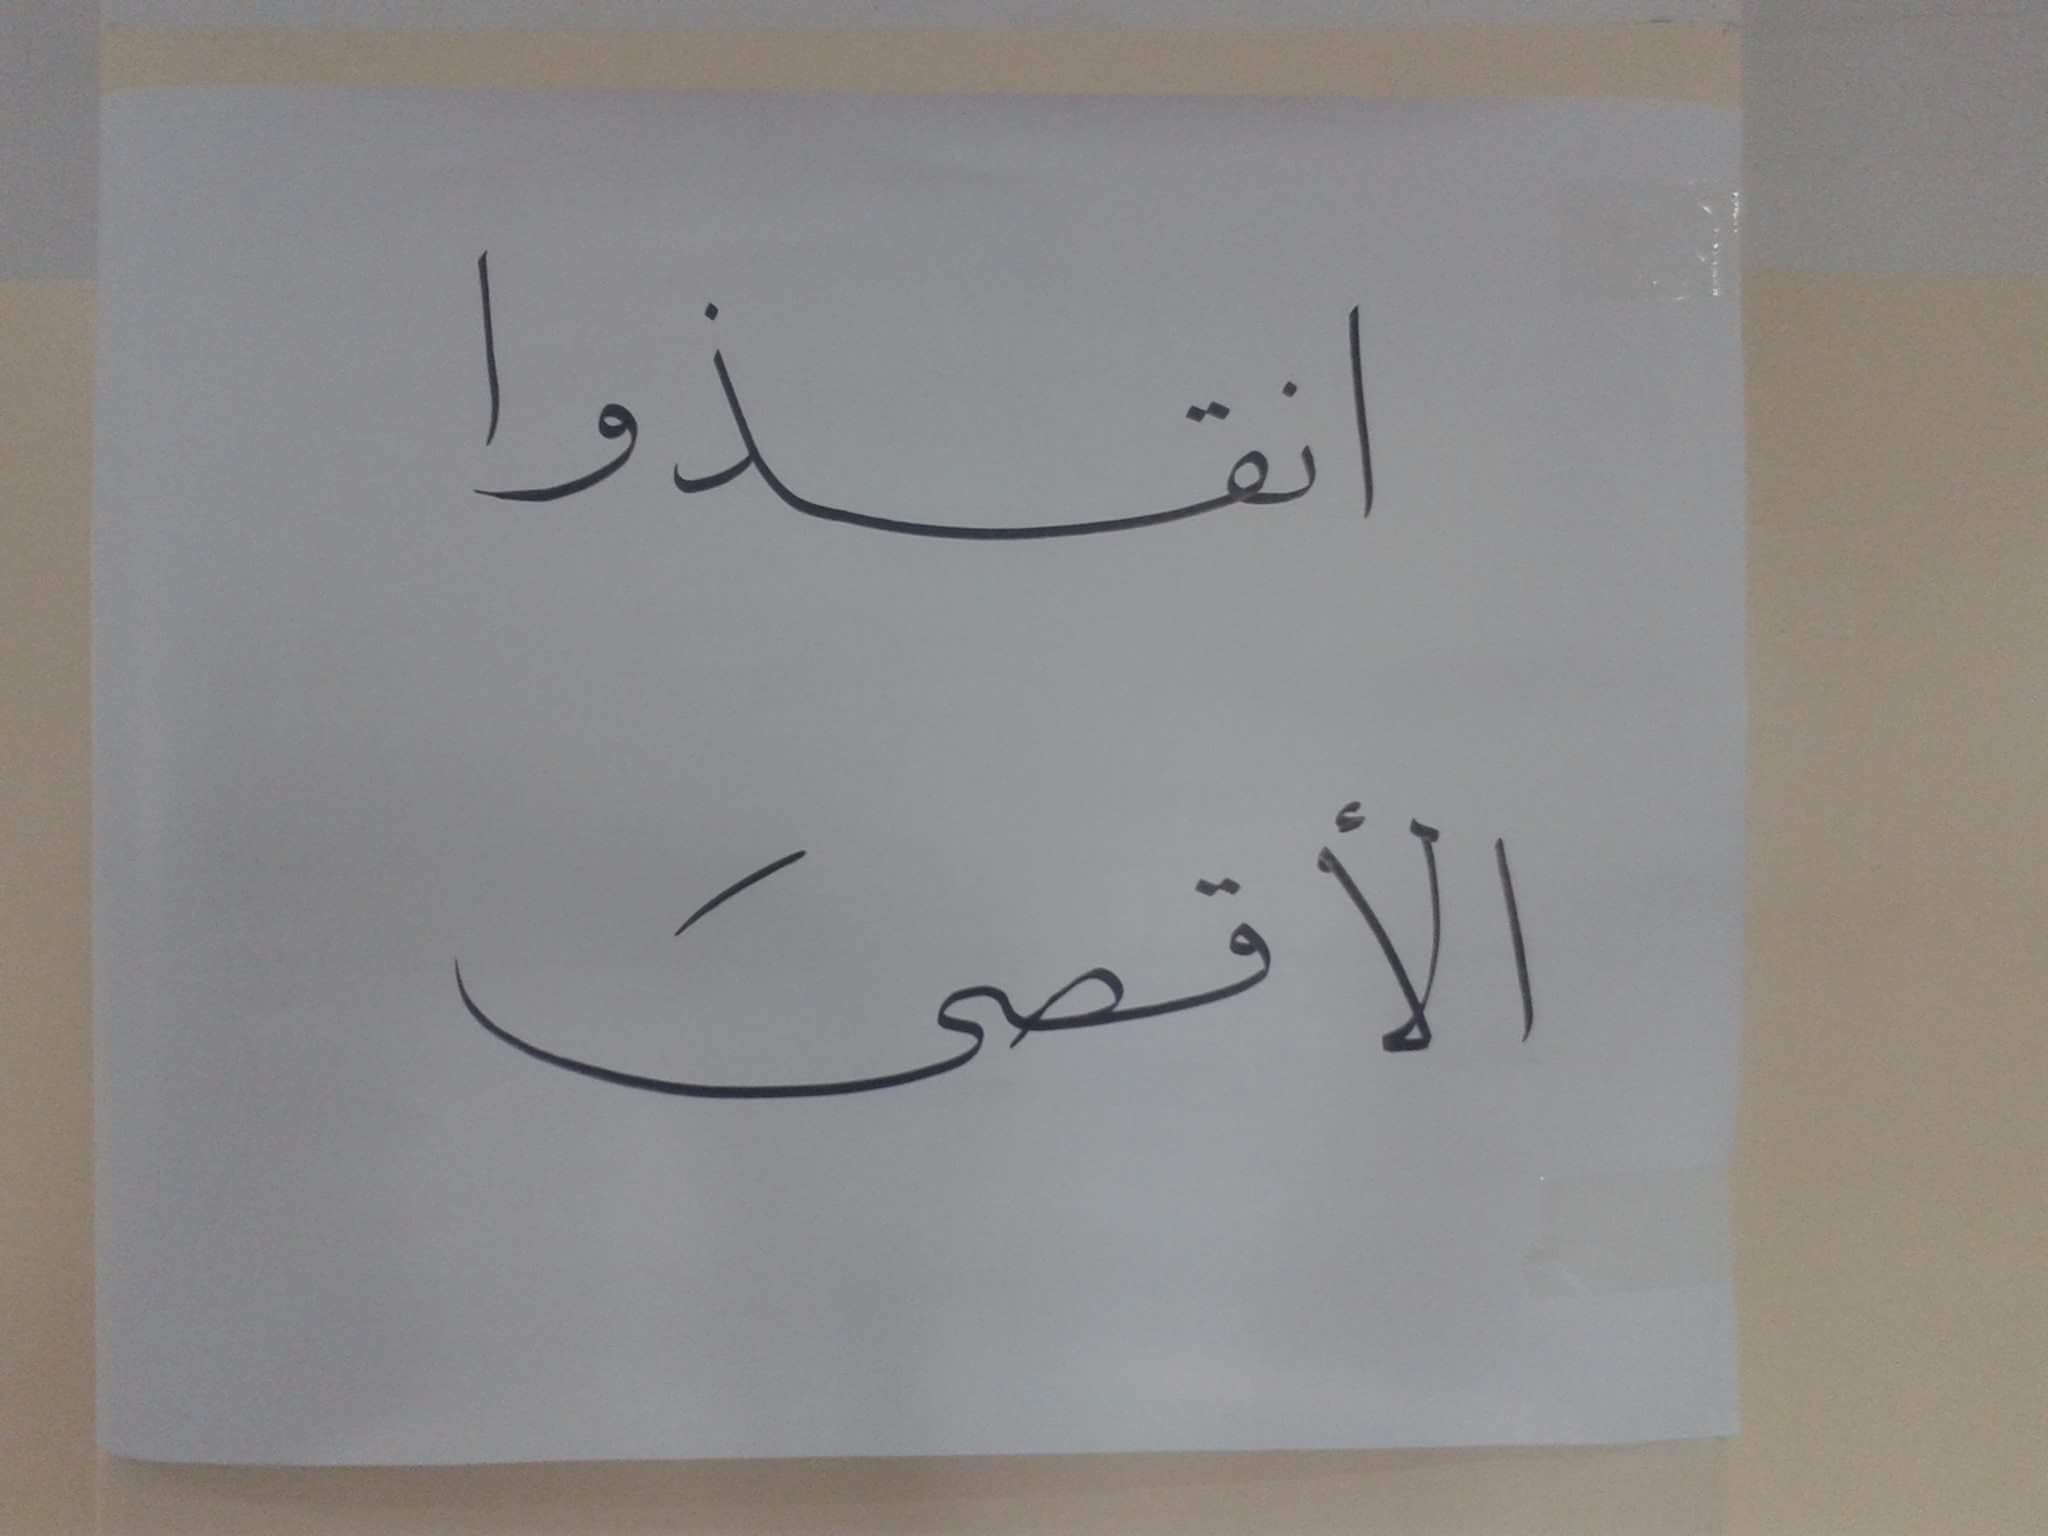 انقذوا
الأقصىَ